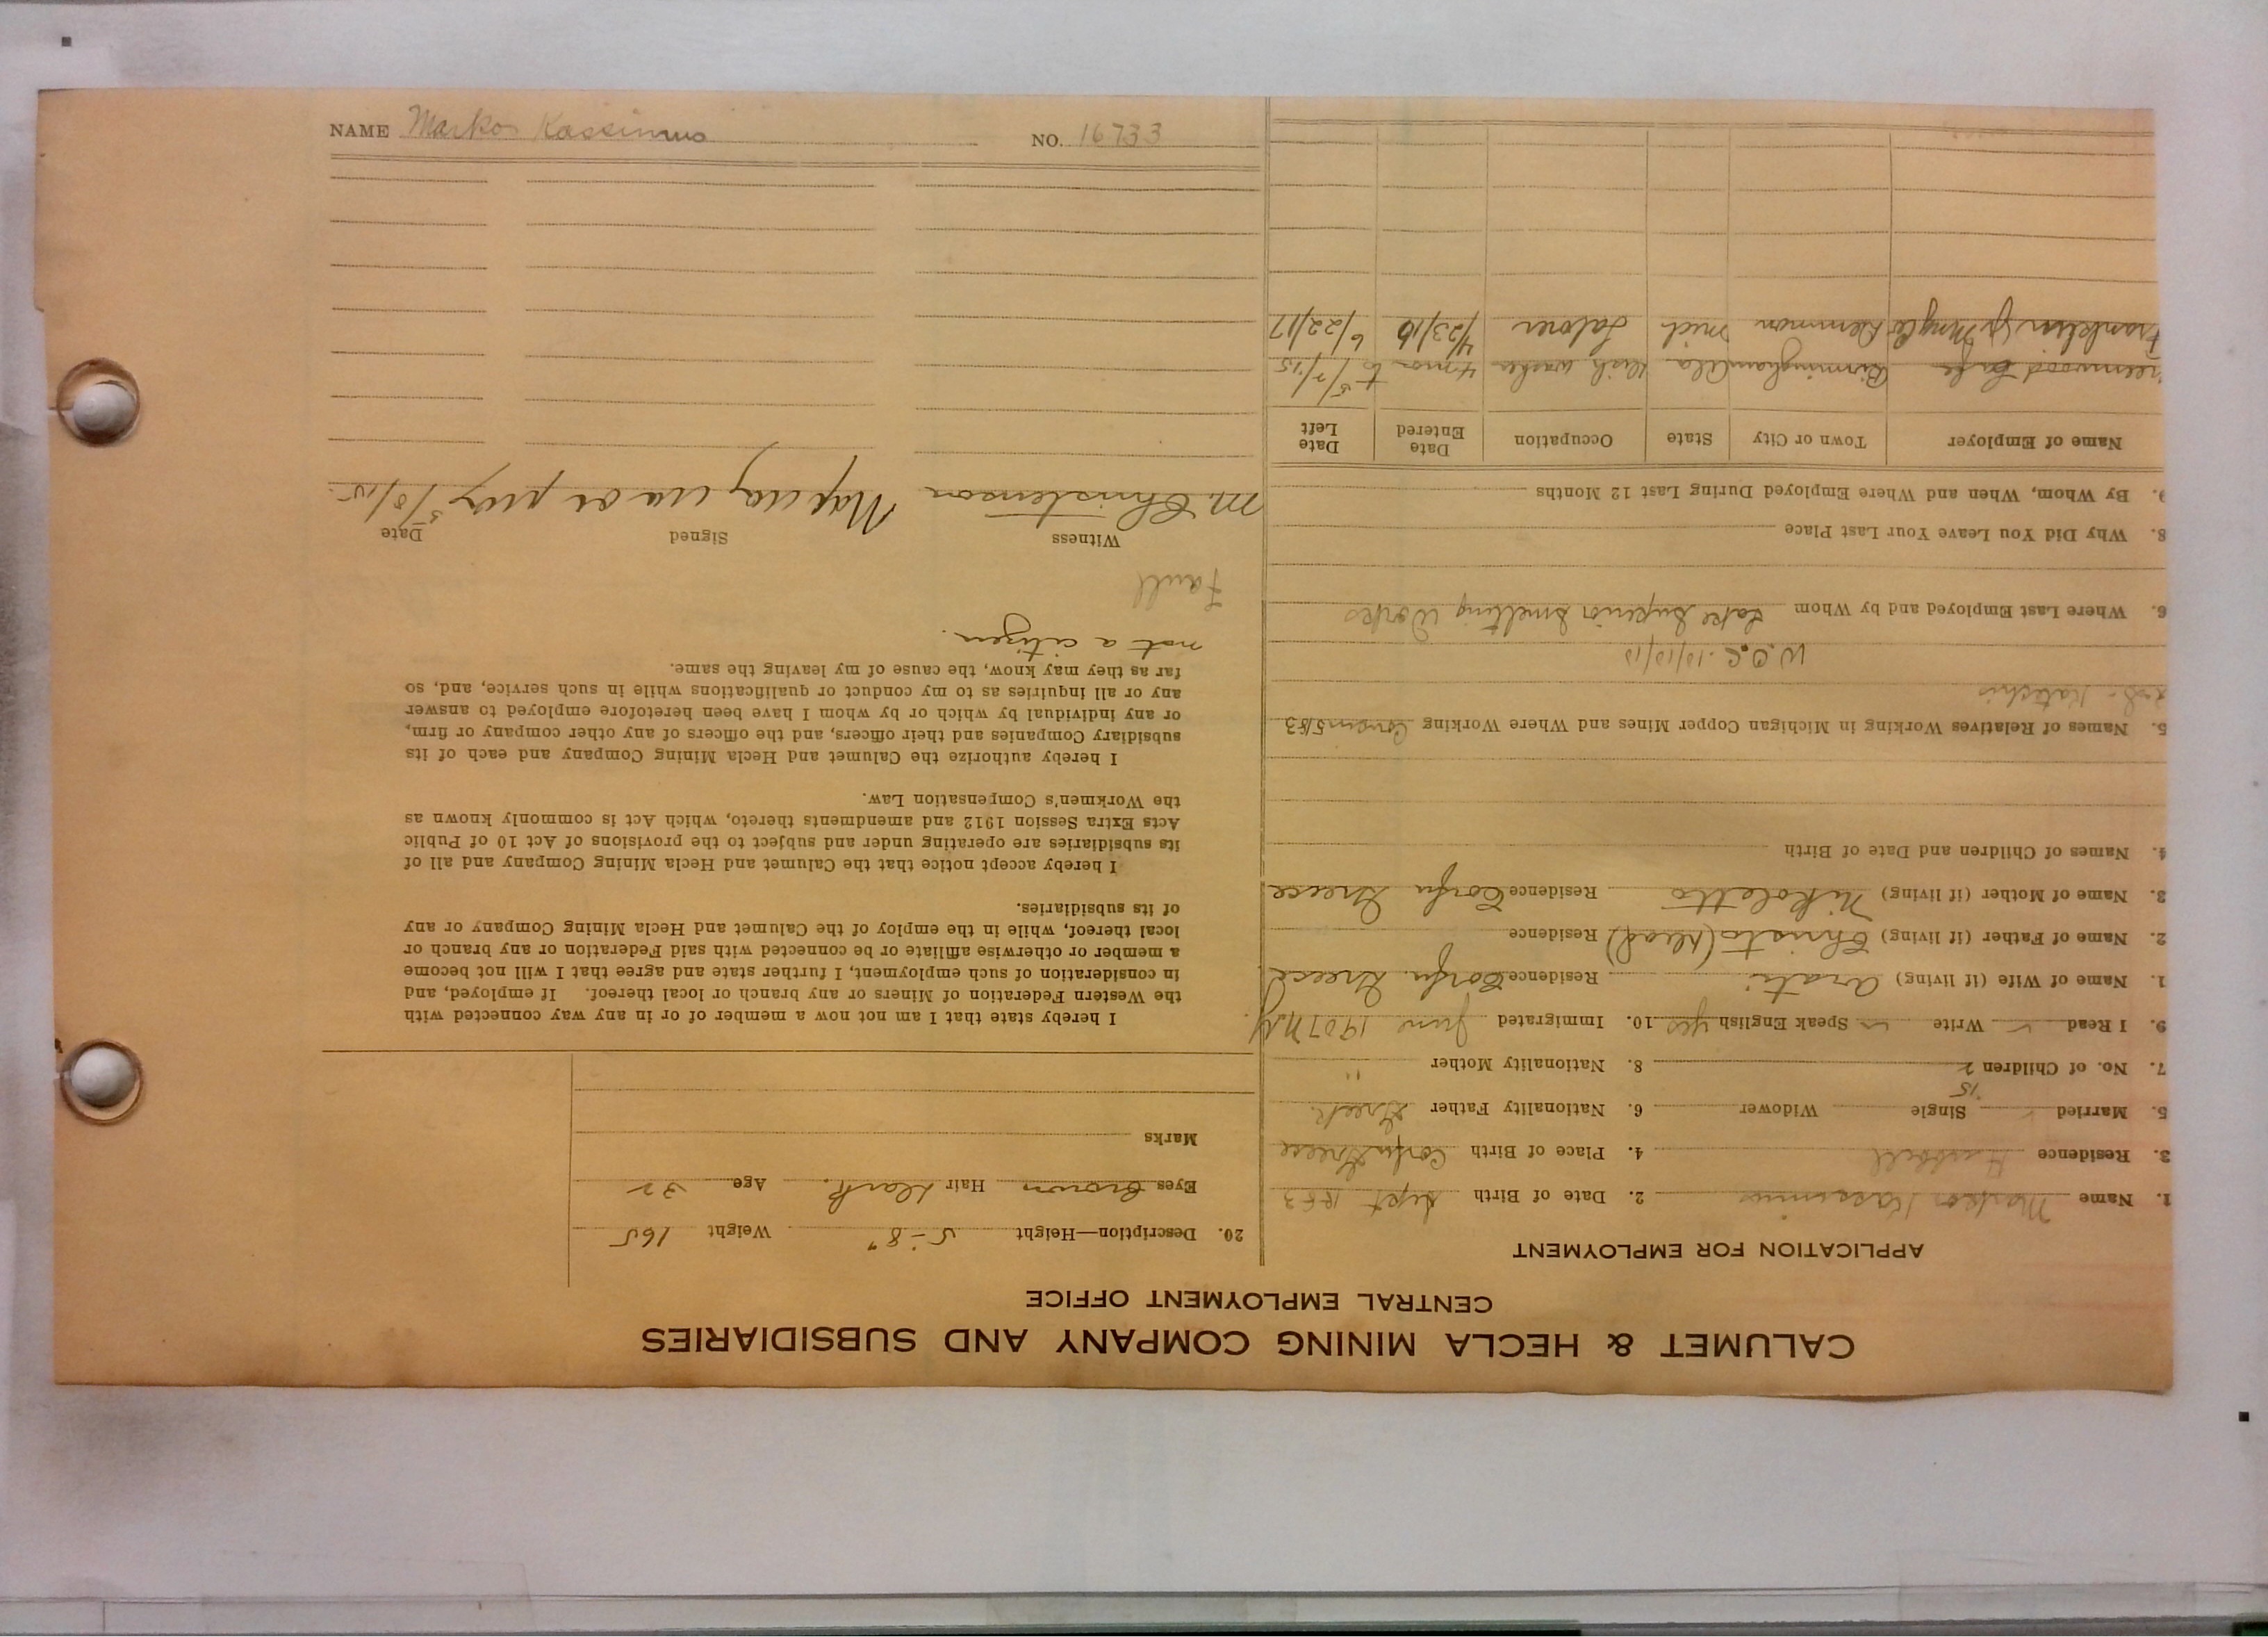 CALUMET & HECLA MINING COMPANY AND SUBSIDIARIES
CENTRAL EMPLOYMENT OFFICE
APPLICATION FOR EMPLOYMENT
1. Name Markos Kassimus 2. Date of Birth Sept 1883
3. Residence Hubbell 4. Place of Birth Corfu Greece
5. Married Single Widower 6. Nationality Father Greek
15
7. No. of Children 2 8. Nationality Mother "
9. I Read ✓ Write ✓ Speak English yes 10. Immigrated June 1907 N.Y.
1. Name of Wife (if living) Residence Corfu Greece
2. Name of Father (if living) Christo (dead) Residence
3. Name of Mother (if living) Nikoletta Residence Corfu Greece
4. Names of Children and Date of Birth
5. Names of Relatives Working in Michigan Copper Mines and Where Working
W.O.C. 10/10/18
6. Where Last Employed and by Whom Lake Superior Smelting Works
8. Why Did You Leave Your Last Place
9. By Whom, When and Where Employed During Last 12 Months
Name of Employer Town or City State Occupation Date Entered Date Left
Birmingham Ala Dish washer 4 mos to 5/7/15
Franklin Jr Mng Co Demmon Mich Laborer 4/23/16 6/22/17
20. Description—Height 5-8" Weight 165
Eyes Brown Hair Dark Age 32
Marks
I hereby state that I am not now a member of or in any way connected with
the Western Federation of Miners or any branch or local thereof. If employed, and
in consideration of such employment, I further state and agree that I will not become
a member or otherwise affiliate or be connected with said Federation or any branch or
local thereof, while in the employ of the Calumet and Hecla Mining Company or any
of its subsidiaries.
I hereby accept notice that the Calumet and Hecla Mining Company and all of
its subsidiaries are operating under and subject to the provisions of Act 10 of Public
Acts Extra Session 1912 and amendments thereto, which Act is commonly known as
the Workmen's Compensation Law.
I hereby authorize the Calumet and Hecla Mining Company and each of its
subsidiary Companies and their officers, and the officers of any other company or firm,
or any individual by which or by whom I have been heretofore employed to answer
any or all inquiries as to my conduct or qualifications while in such service, and, so
far as they may know, the cause of my leaving the same.
not a citizen.
Witness Signed Date
M. Christenson 5/8/15.
NAME Markos Kassimus NO. 16733